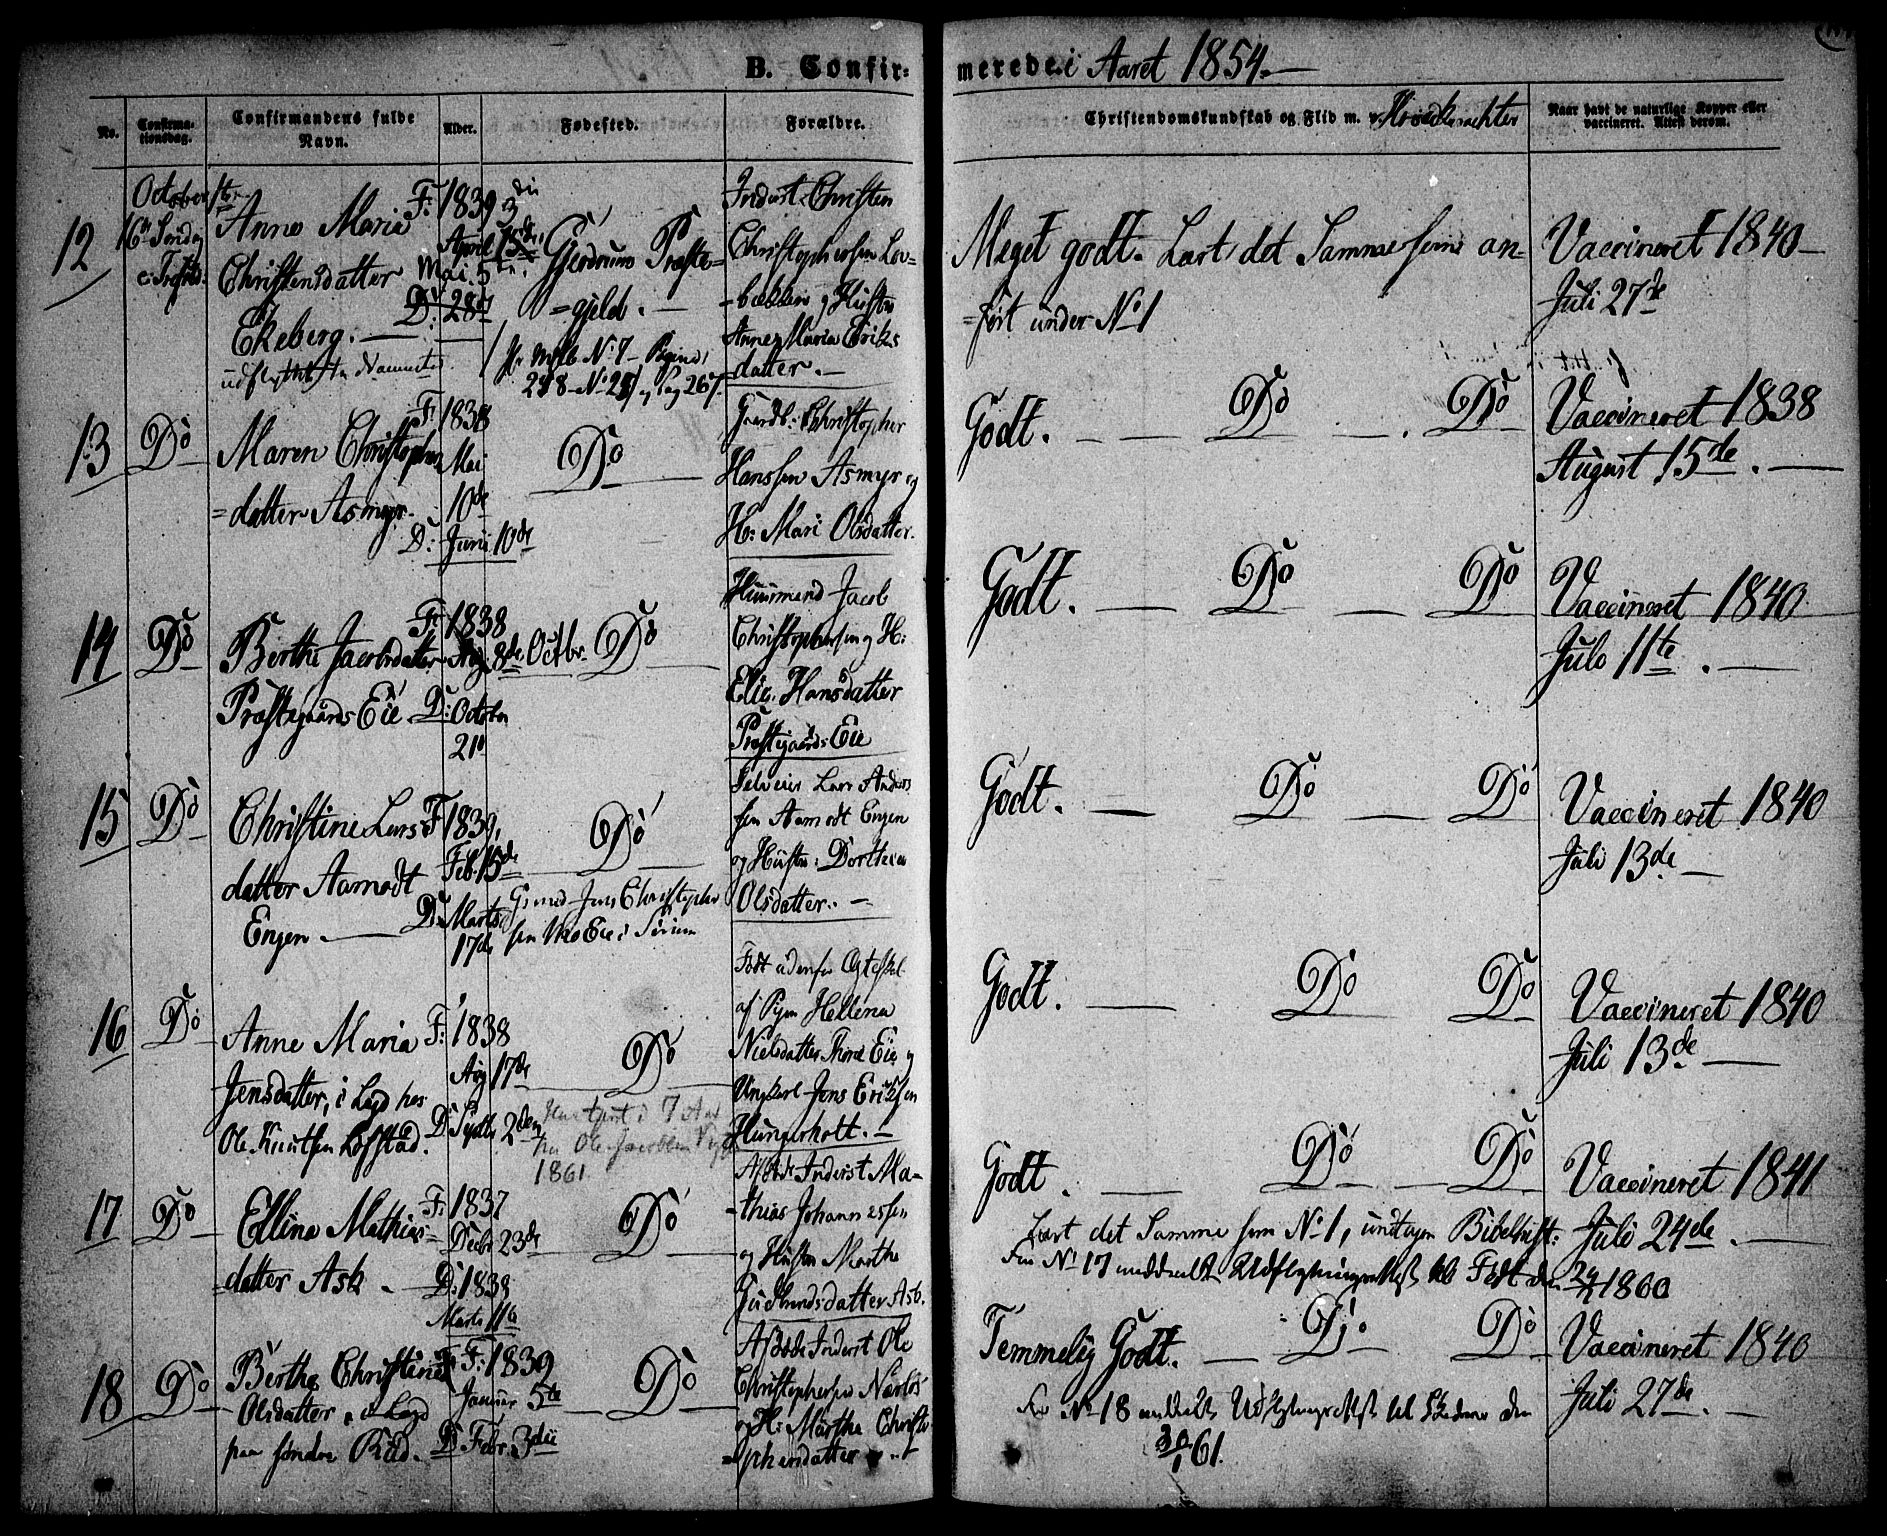 B. Confir- merede i Aaret 1854.
No.
Confirmationsdag.
Confirmandens fulde Navn.
Alder.
Fødested.
Forældre.
Christendomskundskab og Flid m. v.
Naar havt de naturlige Kopper eller vaccineret. Attest derom.
12
October
16de Søndag
e. Trefold.
Anne Maria
Christensdatter
Ekeberg.
F: 1839
D: 28de
Gjerdrums Præste=
=gjeld.
Inderst Christen
Christophersen Løv=
=bækken og Hustru
Anne Maria Eriks
datter.
Meget godt. Lært det Samme som an=
=ført under No 1
Vaccineret 1840
Juli 27de
13
Do
Maren Christophers
=datter Asmyr.
F: 1838
Mai
10de
D: Juni 10de
Do
Gaardb: Christopher
Hanssen Asmyr og
H: Mari Olsdatter.
Godt. Do Do
Vaccineret 1838
August 15de.
14
Do
Berthe Jacobsdatter
Præstegaards Eie
F: 1838
8de Octbr.
D: October
21
Do
Huusmand Jacob
Christophersen og H:
Elie Hansdatter
Præstegaards Eie
Godt. Do Do
Vaccineret 1840.
Juli 11te.
15
Do
Christine Lars
datter Aamodt
Engen.
F 1839,
Feb. 15de
D: Marts
17de
Do
Gift med Jens Christopher
sen Eie i Sørum
Selveier Lars Anders
sen Aamodt Engen
og Hustru: Dorthea
Olsdatter.
Godt. Do Do
Vaccineret 1840
Juli 13de
16
Do
Anne Maria
Jensdatter, i Legd hos
Ole Knutsen Løfstad.
F: 1838
Aug 17de
D: Septbr 2den
Do
1861
Født udenfor Ægteskab
af Pigen Hellena
Nielsdatter Eie og
Ungkarl Jens Eriksen
Hungerholt.
Godt. Do Do
Vaccineret 1840
Juli 13de
17
Do
Ellina Mathias=
=datter Ask.
F: 1837
Decbr 23de
D: 1838
Marts 11te
Do
Afdøde Inderst Ma=
=thias Johannessen
og Hustru Marthe
Gudbrandsdatter Ask.
Godt. Do Do
Lært det Samme som No 1, undtagen Bibelhist:
For No 17 meddeelt Udflytningsattest til Fedt den 24/1 1860
Vaccineret 1841
Juli 24de.
18
Do
Berthe Christine
Olsdatter, i Legd
paa søndre Rud.
F: 1839
Januar 5te
D. Febr. 3die
Do
Afdøde Inderst Ole
Christophersen
og H: Marthe Christo
=phersdatter
Temmelig Godt. Do Do
For No 18 meddeelt Udflytningsattest til Skedsmo den
30/1 61.
Vaccineret 1840
Juli 27de.